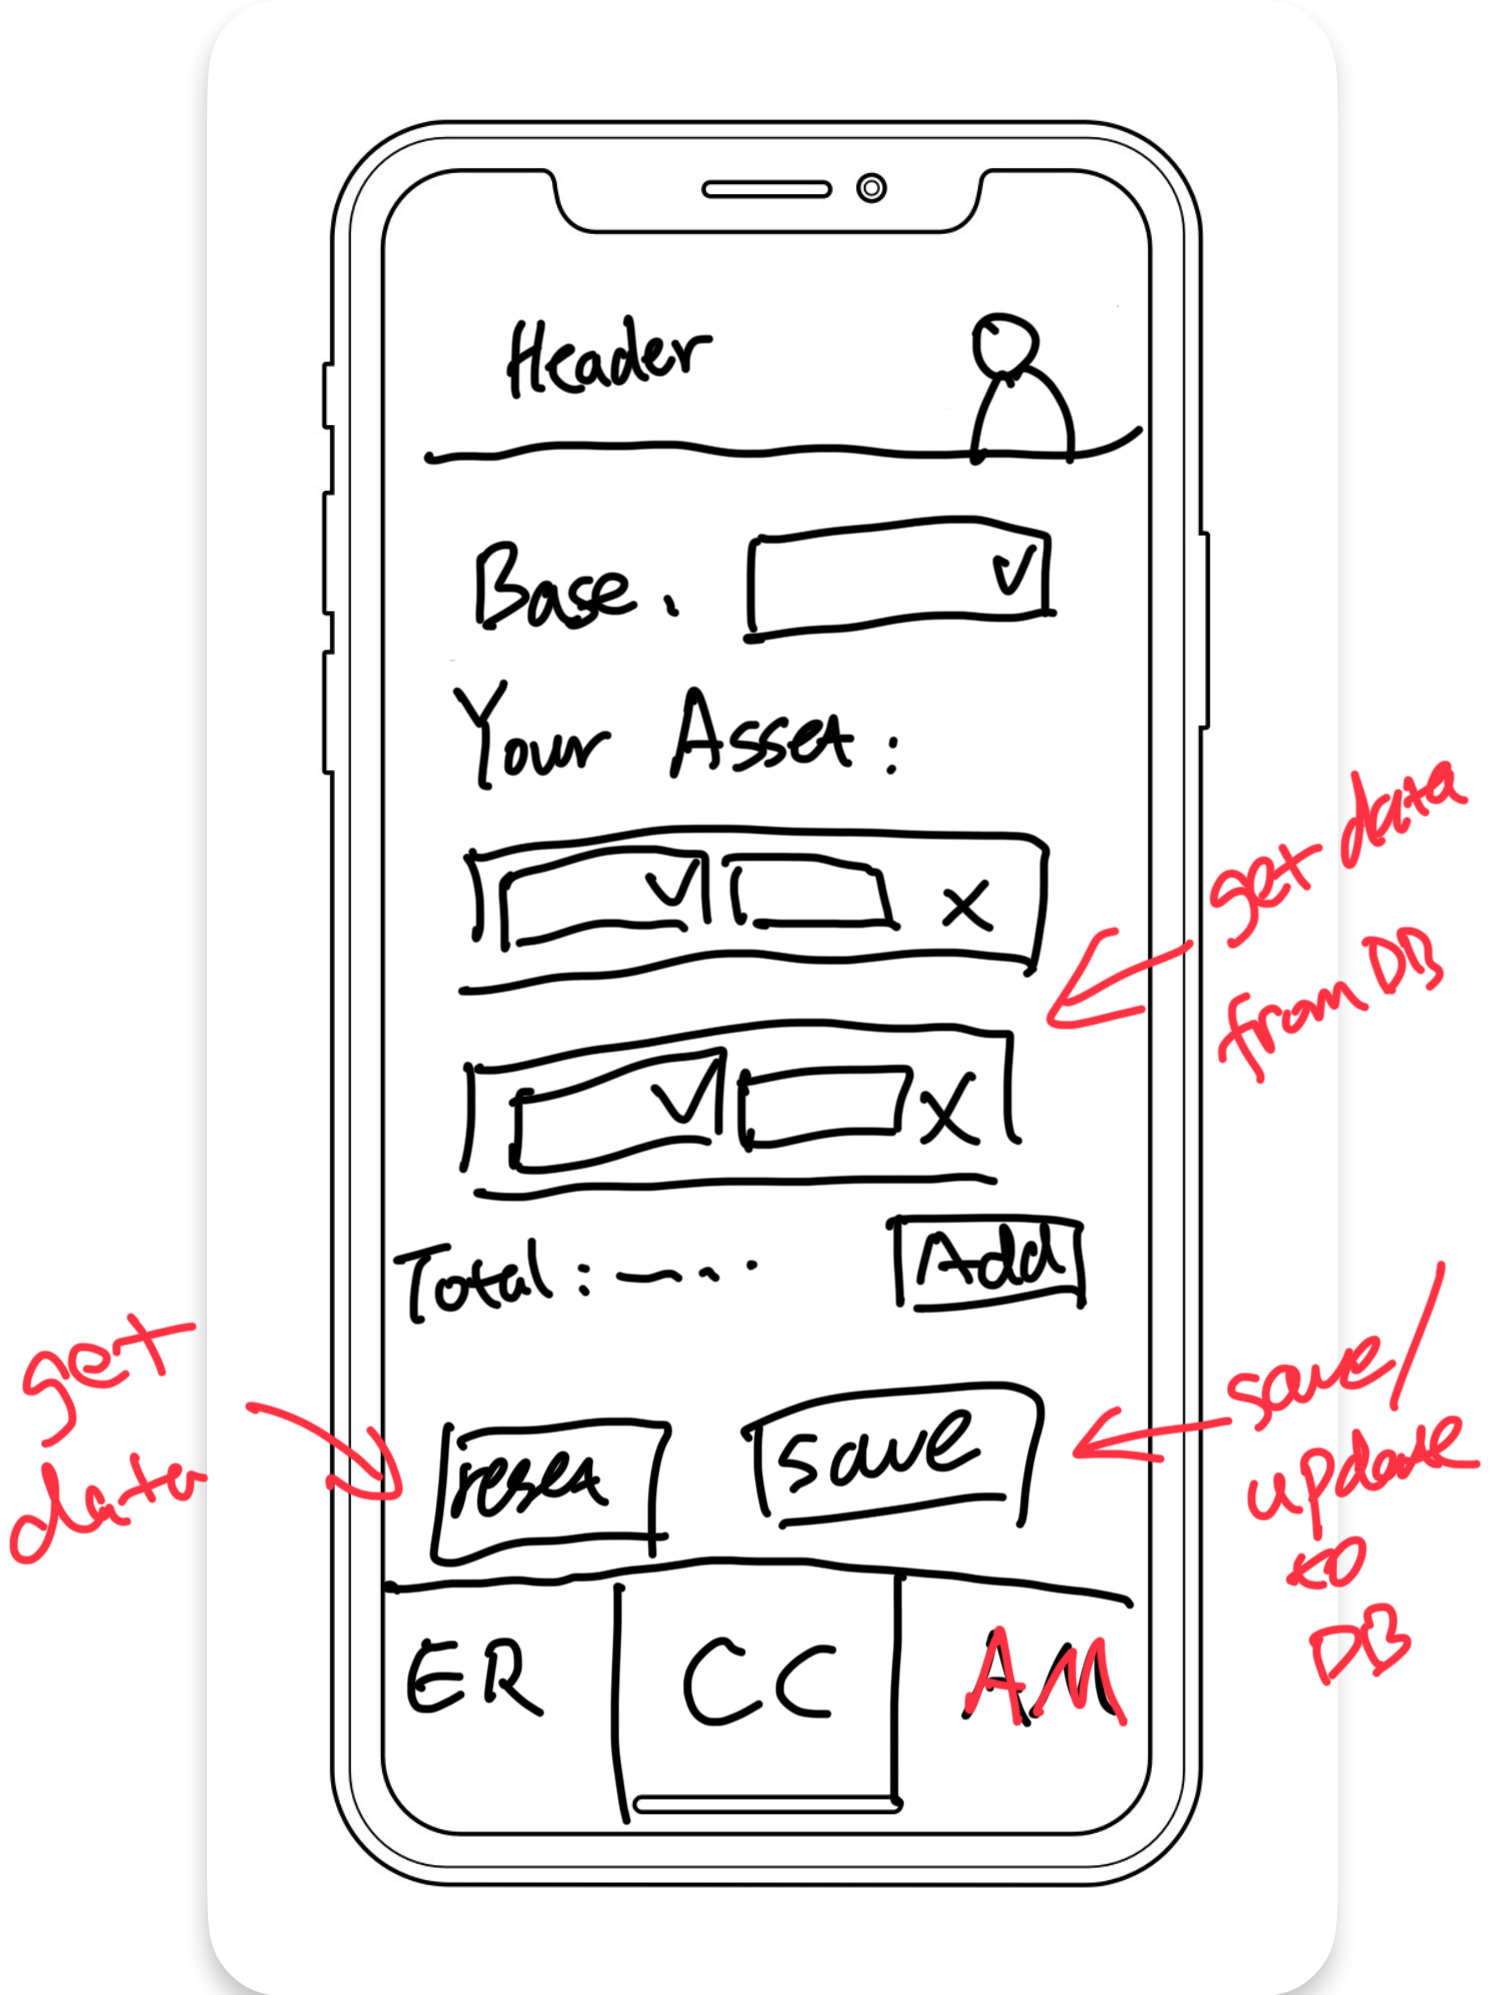 Header
Base:
Your Asset:
get data
from DB
Total: ----
Add
get
data
reset
save
save/
update
to
DB
ER
CC
AM